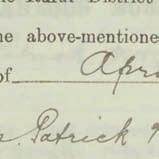 the Rural District
the above-mentione
of Apri
Patrick